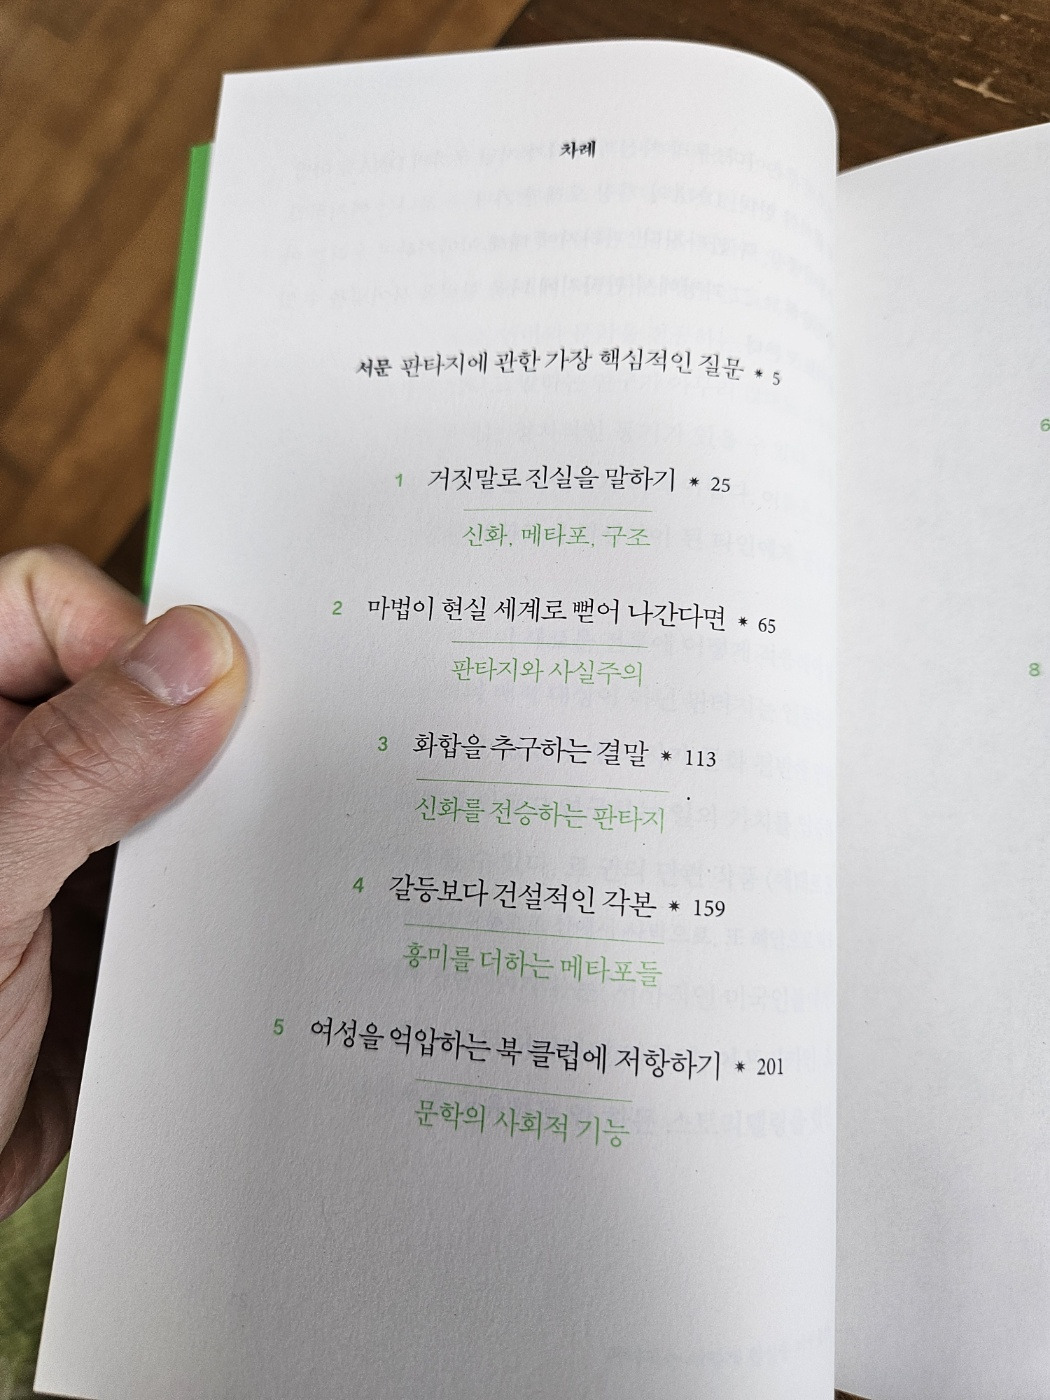 차례
서문 판타지에 관한 가장 핵심적인 질문 * 5
1 거짓말로 진실을 말하기 * 25
신화, 메타포, 구조
2 마법이 현실 세계로 뻗어 나간다면 * 65
판타지와 사실주의
3 화합을 추구하는 결말 * 113
신화를 전승하는 판타지
4 갈등보다 건설적인 각본 * 159
흥미를 더하는 메타포들
5 여성을 억압하는 북 클럽에 저항하기 * 201
문학의 사회적 기능
6
8